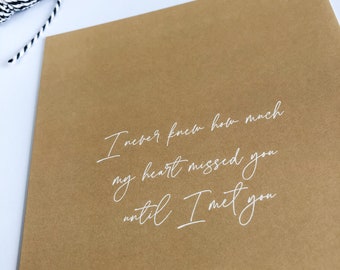 I never knew how much
my heart missed you
until I met you